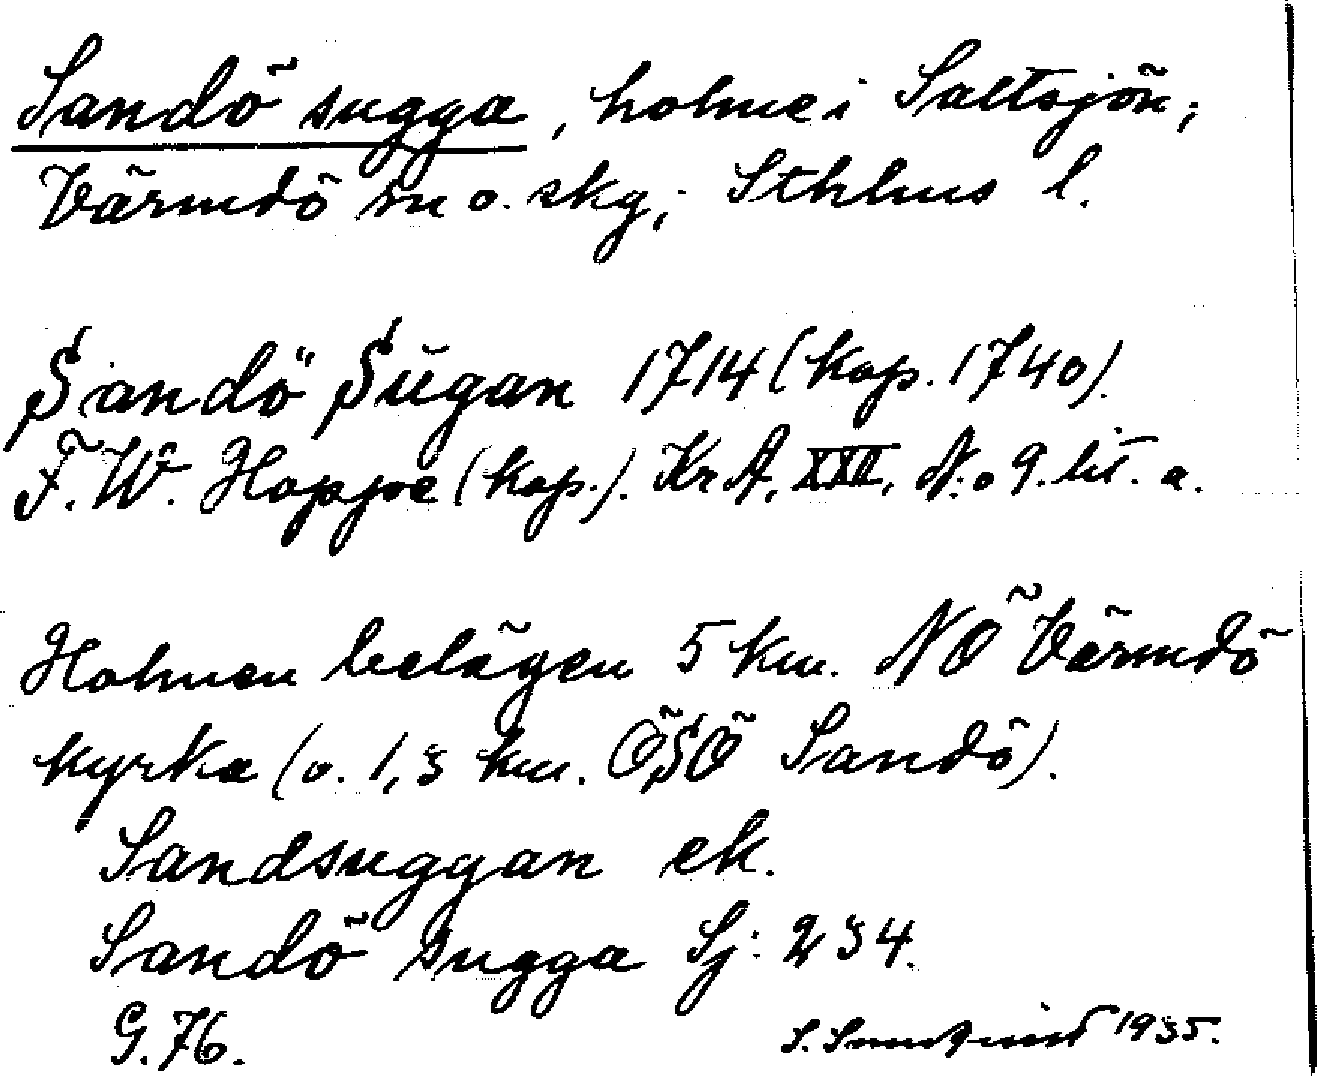 Sandö sugga, holme i Saltsjön;
Värmdö sn o. skg; Sthlms l.
Sandö Sugan 1714 (kop. 1740).
F. W. Hoppe (kop.). Kr A. XXII, N:o 9. lit. a.
Holmen belägen 5 km. NÖ Värmdö
kyrka (o. 1,3 km. ÖSÖ Sandö).
Sandsuggan ek.
Sandö sugga Sj: 234.
G. 76.
S. 1935.